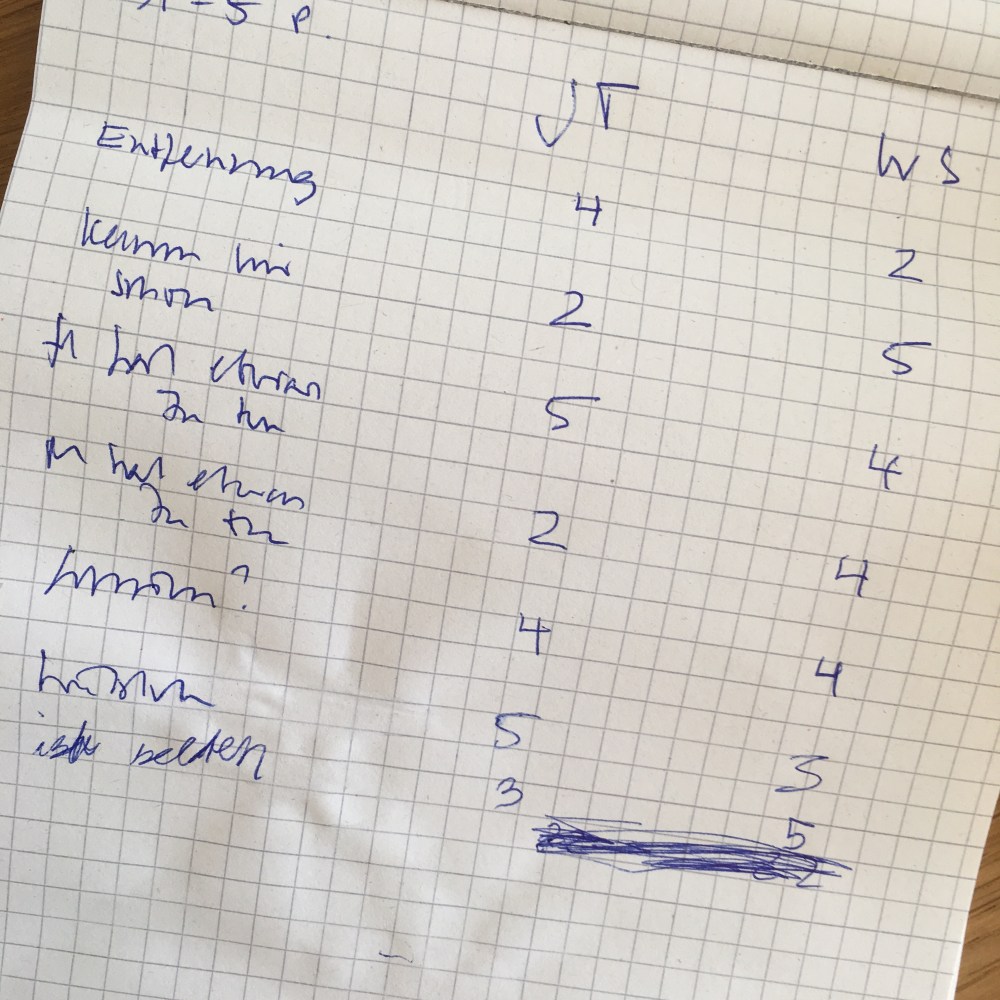 1-5 P.
JT WS
Entfernung 4 2
kenn wir
schon 2 5
hat etwas
zu tun 5 4
M hat etwas
zu tun 2 4
? 4 4
5 5
ist selten 3 5